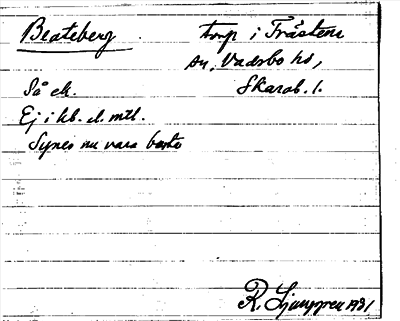 Beateberg . torp i Fråstens
sn, Vadsbo hd,
Så ek. Skarab. l.
Ej i kb. el. mtl.
Synes nu vara borta
R. Ljunggren 1931